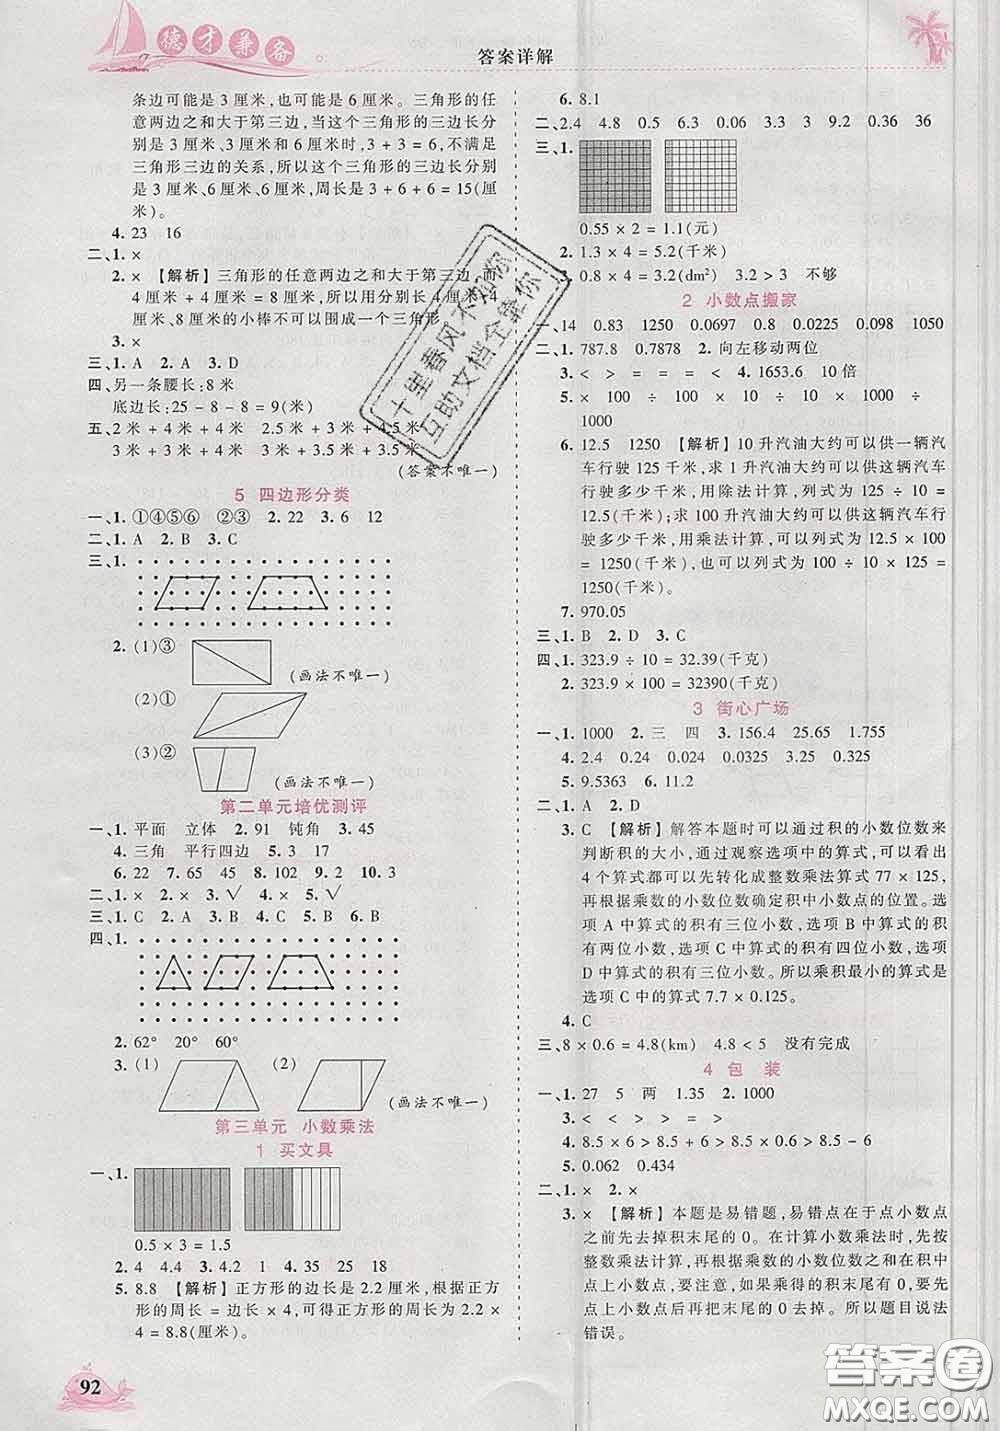 德才兼备
答案详解
条边可能是 3 厘米,也可能是 6 厘米。三角形的任
意两边之和大于第三边,当这个三角形的三边长分
别是 3 厘米、3 厘米和 6 厘米时,3 + 3 = 6,不满足
三角形三边的关系,所以这个三角形的三边长分别
是 3 厘米、6 厘米、6 厘米,周长是 3 + 6 + 6 = 15(厘
米)。
4. 23 16
二、1. ×
2. × 【解析】三角形的任意两边之和大于第三边,而
4 厘米 + 4 厘米 = 8 厘米,所以用分别长 4 厘米、4
厘米、8 厘米的小棒不可以围成一个三角形。
3. ×
三、1. A 2. A 3. D
四、另一条腰长:8 米
底边长:25 - 8 - 8 = 9(米)
五、2 米 + 4 米 + 4 米 2.5 米 + 3 米 + 4.5 米
3 米 + 3 米 + 4 米 3 米 + 3.5 米 + 3.5 米
(答案不唯一)
5 四边形分类
一、1. ①④⑤⑥ ②③ 2. 22 3. 6 12
二、1. A 2. B 3. A
三、1.
2. (1)③
(画法不唯一)
(2)①
(3)②
(画法不唯一)
第二单元培优测评
一、1. 平面 立体 2. 91 钝角 3. 45
4. 三角 平行四边 5. 3 17
6. 22 7. 65 45 8. 102 9. 120 10. 3
二、1. × 2. × 3. √ 4. × 5. √
三、1. C 2. A 3. B 4. A 5. B
四、1.
2. 62° 20° 60°
3. (1) (2)
(画法不唯一)
第三单元 小数乘法
1 买文具
一、1.
0.5 × 3 = 1.5
2. 4 4.4 3. 4.2 1 4. 25 35 18
5. 8.8 【解析】正方形的边长是 2.2 厘米,根据正方
形的周长 = 边长 × 4,可得正方形的周长为 2.2 ×
4 = 8.8(厘米)。
92
6. 8.1
二、2.4 4.8 0.5 6.3 0.06 3 9.2 0.36 36
三、1.
0.55 × 2 = 1.1(元)
2. 1.3 × 4 = 5.2(千米)
3. 0.8 × 4 = 3.2(dm²) 3.2 > 3 不够
2 小数点搬家
一、14 0.83 1250 0.0697 0.8 0.0225 0.098 1050
二、1. 787.8 0.7878 2. 向左移动两位
3. < > = = = < 4. 1653.6 10 倍
5. × 100 ÷ 100 × 100 ÷ 10 × 1000 ÷
1000
6. 12.5 1250 【解析】10 升汽油大约可以供一辆汽
车行驶 125 千米,求 1 升汽油大约可以供这辆汽车
行驶多少千米,用除法计算,列式为 125 ÷ 10 =
12.5(千米);求 100 升汽油大约可以供这辆汽车行
驶多少千米,用乘法计算,列式为 12.5 × 100 =
1250(千米),也可以列式为 125 ÷ 10 × 100 =
1250(千米)。
7. 970.05
三、1. B 2. D 3. C
四、1. 323.9 ÷ 10 = 32.39(千克)
2. 323.9 × 100 = 32390(千克)
3 街心广场
一、1. 1000 2. 三 四 3. 156.4 25.65 1.755
4. 2.4 0.24 0.024 0.0325 0.325 3.25
5. 9.5363 6. 11.2
二、1. A 2. D
3. C 【解析】解答本题时可以通过积的小数位数来
判断积的大小,通过观察选项中的算式,可以看出
4 个算式都可以先转化成整数乘法算式 77 × 125,
再根据乘数的小数位数确定积中小数点的位置。选
项 A 中算式的积有三位小数,选项 B 中算式的积
有两位小数,选项 C 中算式的积有四位小数,选项
D 中算式的积有三位小数。所以乘积最小的算式是
选项 C 中的算式 7.7 × 0.125。
4. C
三、8 × 0.6 = 4.8(km) 4.8 < 5 没有完成
4 包 装
一、1. 27 5 两 1.35 2. 1000
3. < > < > = >
4. 8.5 × 6 > 8.5 + 6 > 8.5 - 6 > 8.5 ÷ 6
5. 0.062 0.434
二、1. × 2. ×
3. × 【解析】本题是易错题,易错点在于点小数点
之前去掉积末尾的 0。在计算小数乘法时,先按
整数乘法计算,再根据乘数的小数位数之和在积中
点上小数点,要注意,如果乘得的积末尾有 0,要先
点上小数点后再把末尾的 0 去掉。所以题目说法
错误。
十里春风不如你
互助文档全靠你
答案圈
MXQE.COM